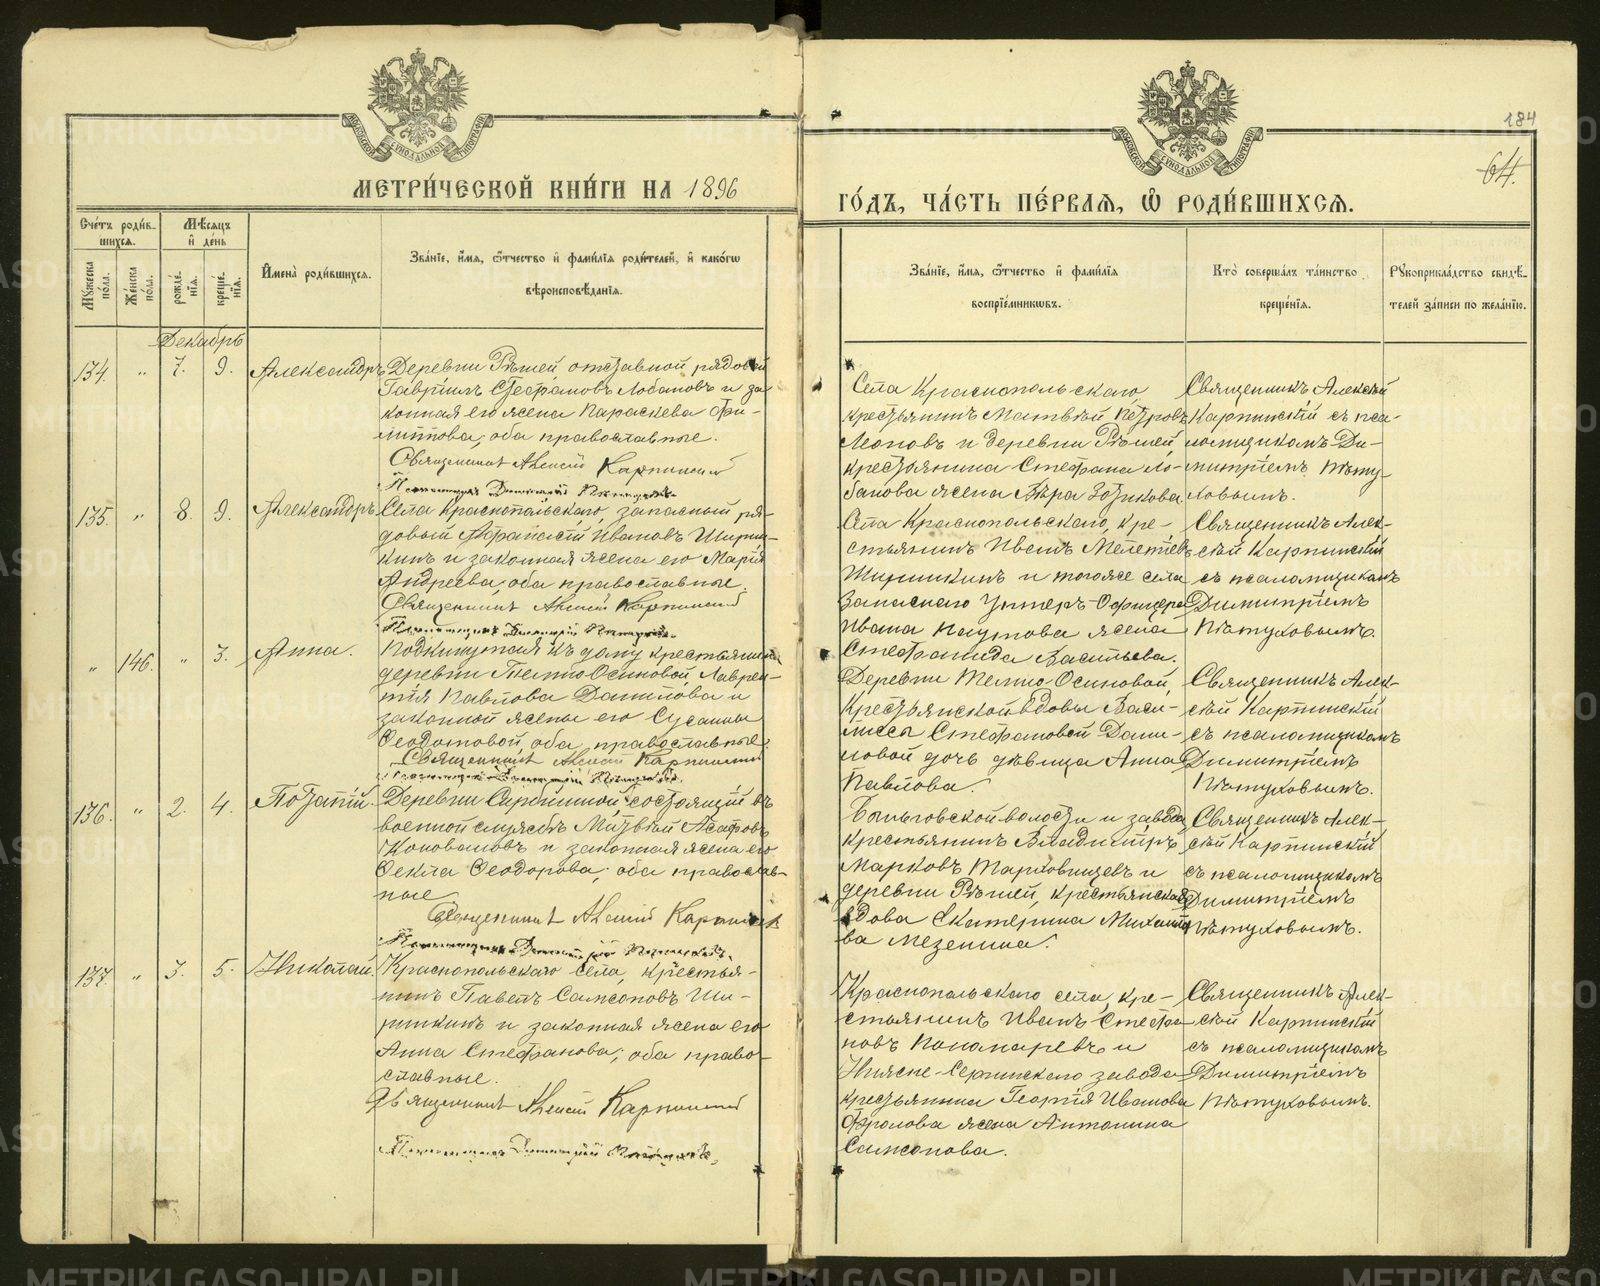 184
64.
МЕТРИ́ЧЕСКОЙ КНИ́ГИ НА 1896
ГО́ДЪ, ЧА́СТЬ ПЕ́РВАЯ, Ѿ РОДИ́ВШИХСЯ.
Сче́тъ роди́в-
шихся.
Мѣ́сяцъ
и҆ де́нь
Му́жеска по́ла.
Же́нска по́ла.
рожде́-
нїя.
креще́-
нїя.
И҆мена̀ роди́вшихся.
Зва́нїе, и҆́мя, ѻ҆́тчество и҆ фами́лїя роди́телей, и҆ како́гѡ
вѣроисповѣ́данїя.
Зва́нїе, и҆́мя, ѻ҆́тчество и҆ фами́лїя
воспрїе́мникѡвъ.
Кто̀ соверша́лъ та́инство
креще́нїя.
Рꙋкоприкла́дство свидѣ́-
телей за́писи по жела́нїю.
Декабрь
134. " 7. 9. Александръ
Деревни Рѣшей отставной рядовой
Гаврiилъ Стефановъ Лобановъ и за
конная его жена Параскева Фи-
липпова; оба православные.
Священникъ Алексiй Карпинскiй
Села Краснопольскаго,
крестьянинъ Матвѣй Петровъ
Леоновъ и деревни Рѣшей,
крестьянина Стефана Ло-
банова жена Вѣра Зотикова
Священникъ Алексѣй
Карпинскiй съ пса-
ломщикомъ Ди-
митрiемъ Пѣту-
ховымъ.
135. " 8. 9. Александръ
Села Краснопольскаго, запасный ря-
довый Афанасiй Ивановъ Ширин-
кинъ и законная жена его Марiя
Андреева; оба православные.
Священникъ Алексiй Карпинскiй
Села Краснопольскаго, кре-
стьянинъ Иванъ Мелетiевъ
Ширинкинъ и тогоже села
Запаснаго Унтеръ-Офицера
Ивана Паутова жена
Стефанида Васильева.
Священникъ Алек-
сѣй Карпинскiй
съ псаломщикомъ
Димитрiемъ
Пѣтуховымъ.
" 146. " 3. Анна.
Подкинутая къ дому крестьянина
деревни Темно-Осиновой, Лаврен-
тiя Павлова Данилова и
законной жены его Сусанны
Ѳеодотовой, оба православные.
Священникъ Алексiй Карпинскiй
Деревни Темно-Осиновой,
Крестьянской вдовы Васи-
лиссы Стефановой Дани-
ловой дочь дѣвица Анна
Павлова.
Священникъ Алек-
сѣй Карпинскiй
съ псаломщикомъ
Димитрiемъ
Пѣтуховымъ.
136. " 2. 4. Потапiй.
Деревни Сарбинной, состоящiй въ
военной службѣ Матвѣй Асафовъ
Коноваловъ и законная жена его
Ѳекла Ѳеодорова; оба православ-
ные
Священникъ Алексiй Карпинскiй
волости и завода
крестьянинъ Владимiръ
Марковъ и
деревни Рѣшей, крестьянская
вдова Екатерина Михайло
ва Мезенина.
Священникъ Алек-
сѣй Карпинскiй
съ псаломщикомъ
Димитрiемъ
Пѣтуховымъ.
137. " 3. 5. Николай.
Краснопольскаго села, крестья-
нинъ Павелъ Самсоновъ Ши-
ринкинъ и законная жена его
Анна Стефанова; оба право-
славные.
Священникъ Алексiй Карпинскiй
Краснопольскаго села, кре-
стьянинъ Иванъ Стефа-
новъ Пономаревъ и
Нижне-Сергинскаго завода
крестьянина Георгiя Иванова
Фролова жена Антонина
Самсонова.
Священникъ Алек-
сѣй Карпинскiй
съ псаломщикомъ
Димитрiемъ
Пѣтуховымъ.
METRIKI.GASO-URAL.RU